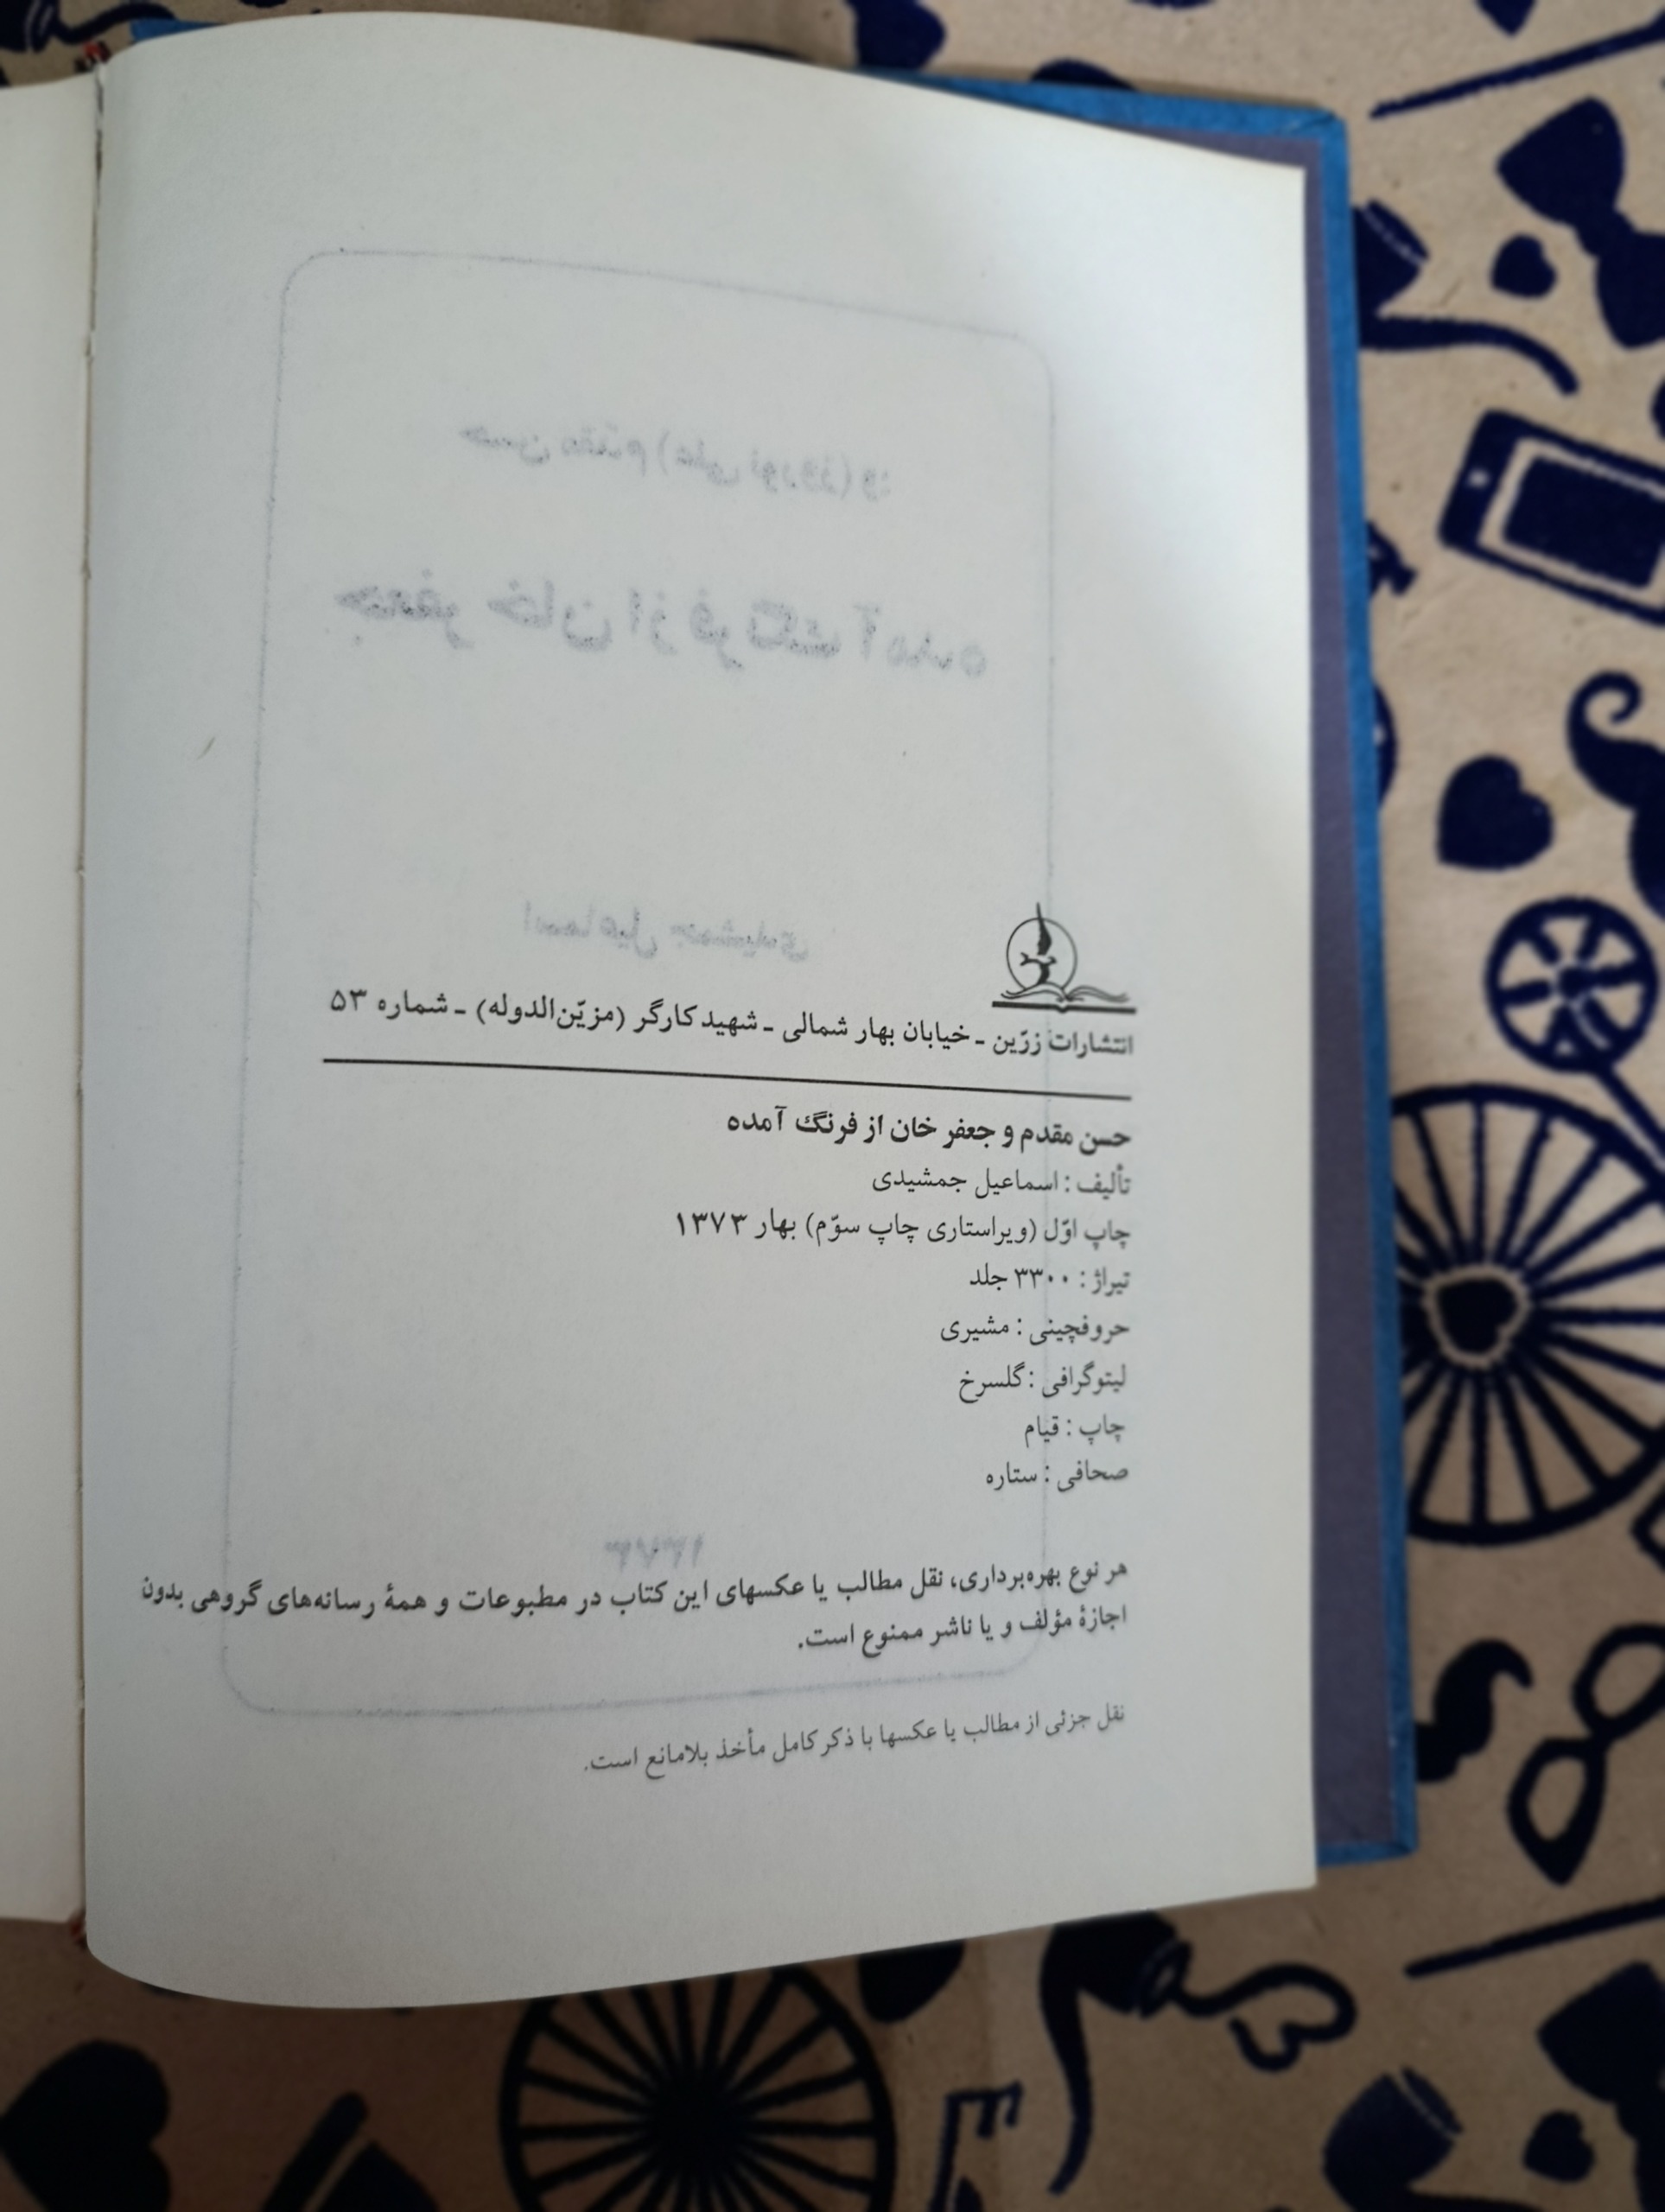 انتشارات زرّین - خیابان بهار شمالی - شهید کارگر (مزیّن‌الدوله) - شماره ۵۳
حسن مقدم و جعفر خان از فرنگ آمده
تألیف : اسماعیل جمشیدی
چاپ اوّل (ویراستاری چاپ سوّم) بهار ۱۳۷۳
تیراژ : ۳۳۰۰ جلد
حروفچینی : مشیری
لیتوگرافی : گلسرخ
چاپ : قیام
صحافی : ستاره
هر نوع بهره‌برداری، نقل مطالب یا عکسهای این کتاب در مطبوعات و همهٔ رسانه‌های گروهی بدون
اجازهٔ مؤلف و یا ناشر ممنوع است.
نقل جزئی از مطالب یا عکسها با ذکر کامل مأخذ بلامانع است.